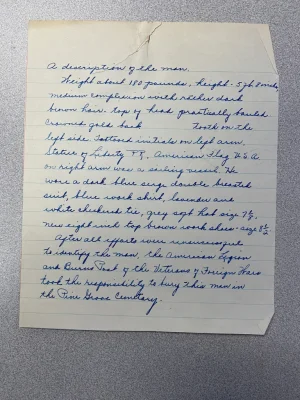 A description of the man.
Weight about 180 pounds, height - 5 ft. 8 inches,
medium complexion with rather dark
brown hair. top of head practically bald
Crowned gold back tooth on the
left side. Tattooed initials on left arm.
Statue of Liberty F.F. American Flag U.S.A
on right arm was a sailing vessel. He
wore a dark blue serge double breasted
suit, blue work shirt, lavender and
white checkered tie, grey soft hat size 7 1/8,
new eight inch top brown work shoes - size 8 1/2
After all efforts were unsuccessful
to identify the man, the American Legion
and Burns Post of the Veterans of Foreign Wars
took the responsibility to bury this man in
the Pine Grove Cemetery.